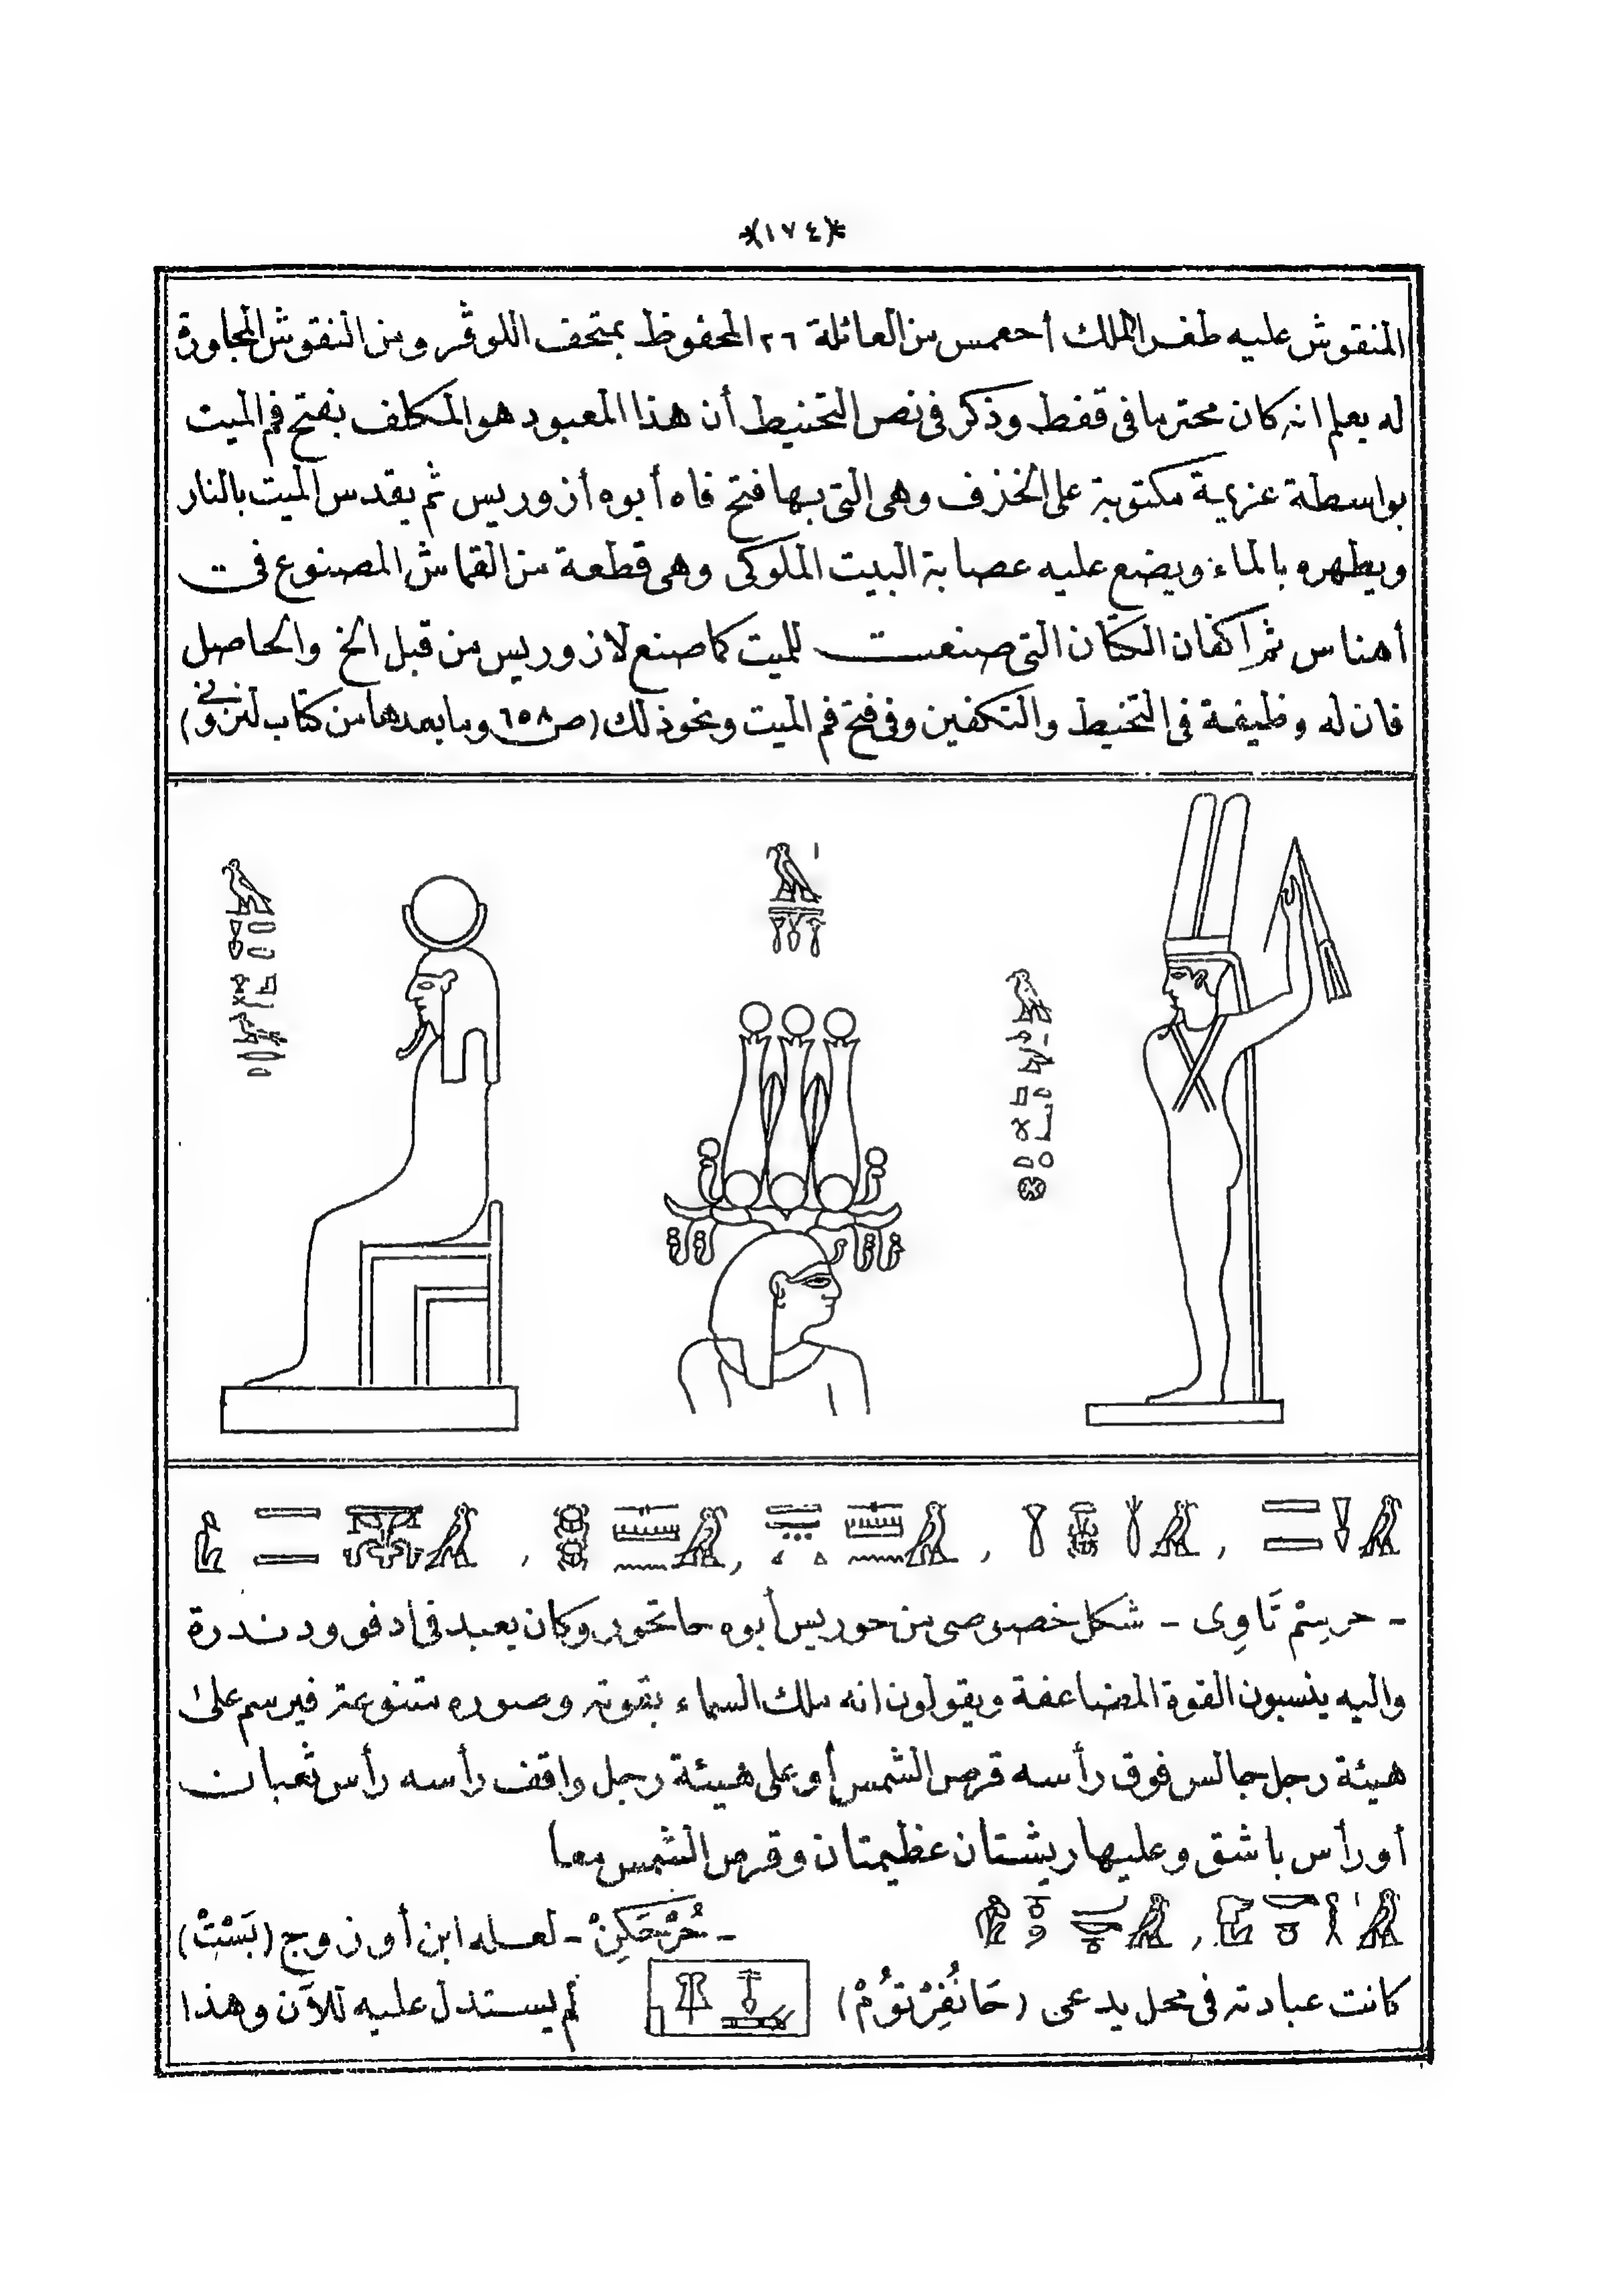 *(١٧٤)*
المنقوش عليه طغر الملك أحعمس من العائلة ٢٦ المحفوظ بمتحف اللوڤر ومن النقوش المجاورة
له يعلم انه كان محترما فى قفط وذكر فى نص التحنيط أن هذا المعبود هو المكلف بفتح فم الميت
بواسطة عزيمة مكتوبة على الخذف وهى التى بها فتح فاه أبوه أزوريس ثم يقدس الميت بالنار
ويطهره بالماء ويضع عليه عصابة البيت الملوكى وهى قطعة من القماش المصنوع فى
أهناس ثم اكفان الكتان التى صنعت للميت كما صنع لازوريس من قبل الخ والحاصل
فان له وظيفة فى التحنيط والتكفين وفى فتح فم الميت ونحو ذلك (ص ٦٥٨ وما بعدها من كتاب لنزونى)
- حرسِمْ تَاوِى - شكل خصوصى من حوريس أبوه حاتحور وكان يعبد فى ادفو ودندرة
واليه ينسبون القوة المضاعفة ويقولون انه ملك السماء بقوته وصوره متنوعة فيرسم على
هيئة رجل جالس فوق رأسه قرص الشمس أو على هيئة رجل واقف رأسه رأس ثعبان
أو رأس باشق وعليها ريشتان عظيمتان وقرص الشمس معا
- حُرْحَكِنْ - لعله ابن أو زوج (بَسْتْ)
كانت عبادته فى محل يدعى (حَانُفِرْتُومْ) لم يستدل عليه للآن وهذا